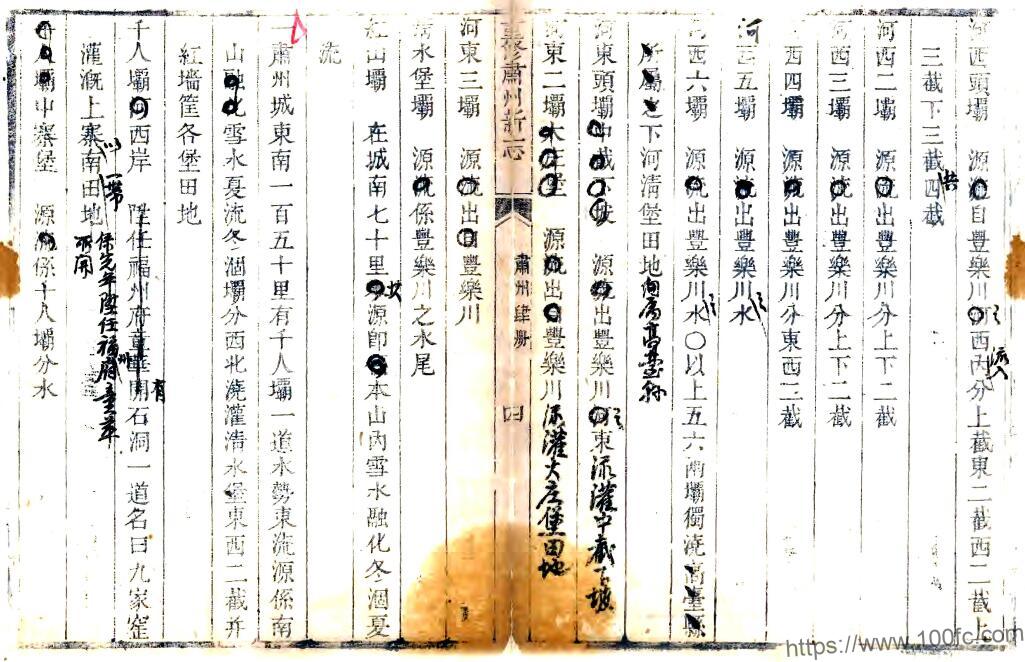 河西頭壩　源自豐樂川河西內分上截東二截西二截上
三截下三截四截 共
河西二壩　源出豐樂川分上下二截
河西三壩　源出豐樂川分上下二截
西四壩　源出豐樂川分東西二截
河西五壩　源出豐樂川水
河西六壩　源出豐樂川水〇以上五六兩壩獨澆高臺縣
所屬之下河清堡田地向屬高臺縣
河東頭壩中截下坡　源出豐樂川河東澆灌中截下坡
河東二壩大庄堡　源出豐樂川澆灌大庄堡田地
重修肅州新志
肅州肆册
四
河東三壩　源流出自豐樂川
清水堡壩　源流係豐樂川之水尾
紅山壩　在城南七十里水源即本山內雪水融化冬涸夏
流
一肅州城東南一百五十里有千人壩一道水勢東流源係南
山融化雪水夏流冬涸壩分西北澆灌清水堡東西二截并
紅墻筐各堡田地
千人壩河西岸　陞任福州府童華開石洞一道名曰九家窑
灌溉上寨南田地 一帶 係先年陞任福州府童華所開
千人壩中寨堡　源流係千人壩分水
https://www.100fc.com